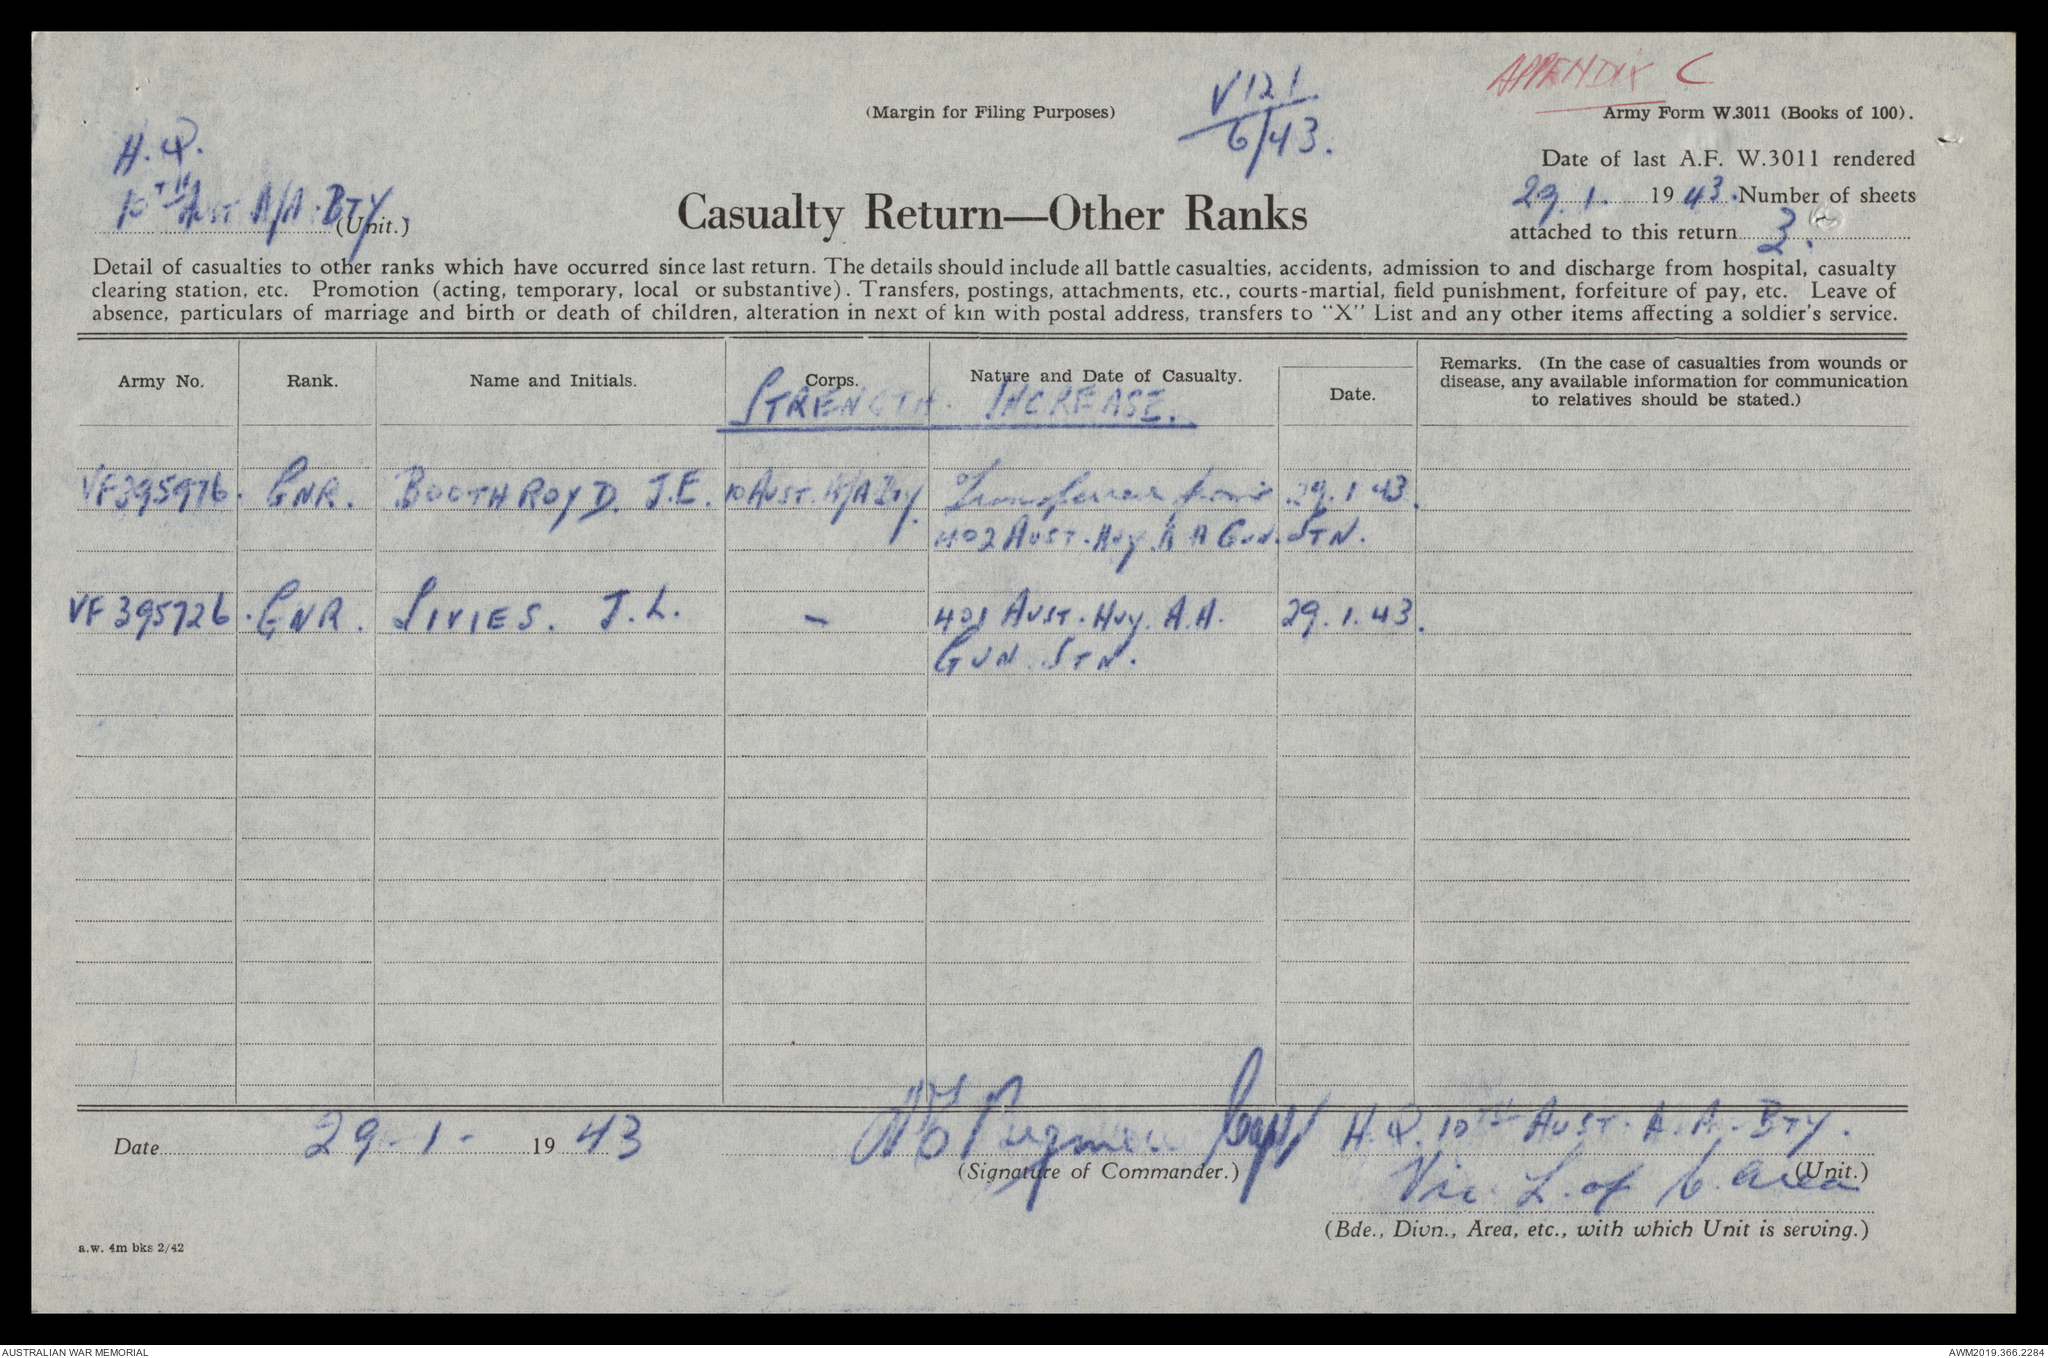 APPENDIX C
(Margin for Filing Purposes)
V121
6/43.
Army Form W.3011 (Books of 100).
H.Q.
10TH AUST A/A. BTY (Unit.)
Casualty Return—Other Ranks
Date of last A.F. W.3011 rendered
29.1. 1943. Number of sheets
attached to this return 3.
Detail of casualties to other ranks which have occurred since last return. The details should include all battle casualties, accidents, admission to and discharge from hospital, casualty
clearing station, etc. Promotion (acting, temporary, local or substantive). Transfers, postings, attachments, etc., courts-martial, field punishment, forfeiture of pay, etc. Leave of
absence, particulars of marriage and birth or death of children, alteration in next of kin with postal address, transfers to "X" List and any other items affecting a soldier's service.
Army No. Rank. Name and Initials. Corps. Nature and Date of Casualty. Date. Remarks. (In the case of casualties from wounds or
disease, any available information for communication
to relatives should be stated.)
STRENGTH. INCREASE.
VF395976. GNR. BOOTHROYD. J.E. 10 AUST. A/A Bty. Transferred from 29.1.43.
402 AUST. Hvy. A A GUN. STN.
VF395726. GNR. SIVIES. J.L. – 401 AUST. Hvy. A.A. 29.1.43.
GUN. STN.
Date 29-1- 1943 Capt H.Q. 10TH AUST. A.A. BTY.
(Signature of Commander.) (Unit.)
Vic. L. of C. Area
(Bde., Divn., Area, etc., with which Unit is serving.)
a.w. 4m bks 2/42
AUSTRALIAN WAR MEMORIAL AWM2019.366.2284